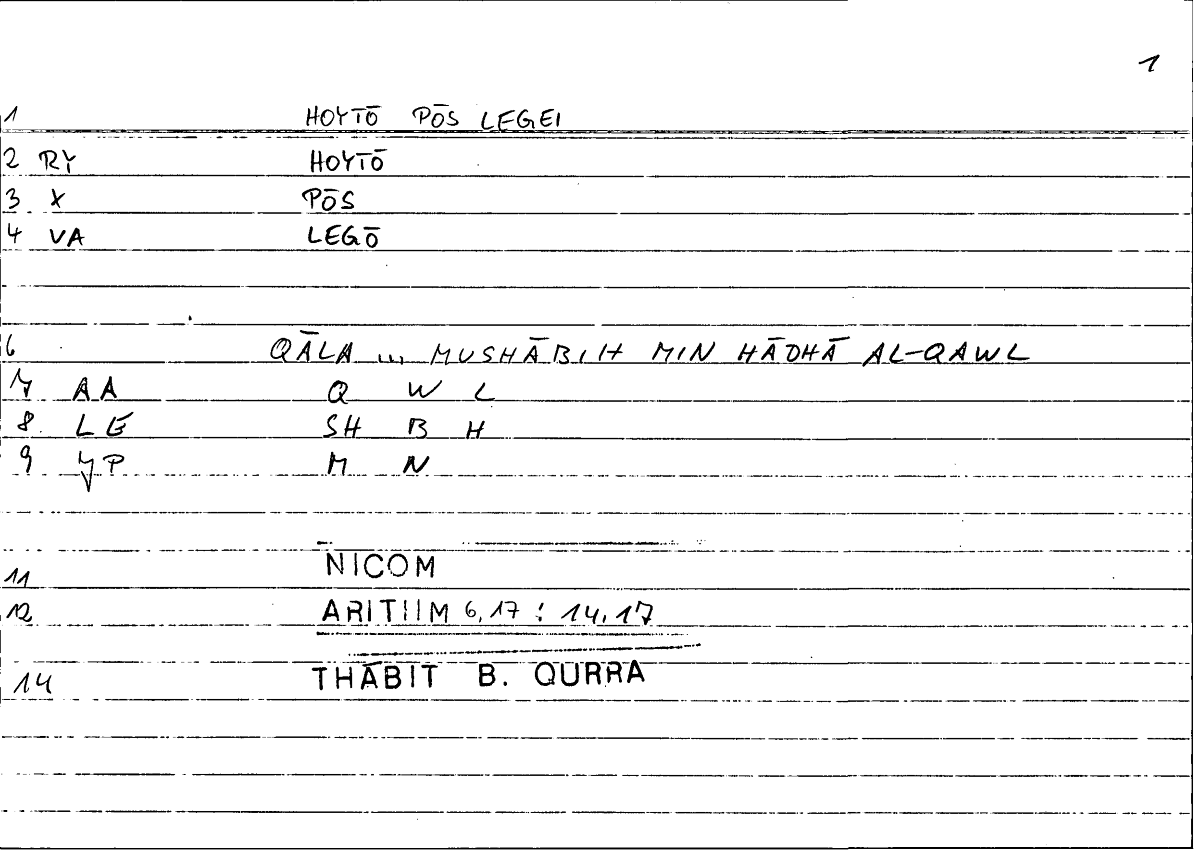 1
1 HOYTŌ PŌS LEGEI
2 RY HOYTŌ
3 X PŌS
4 VA LEGŌ
6 QĀLA ... MUSHĀBIH MIN HĀDHĀ AL-QAWL
7 AA Q W L
8 LE SH B H
9 M N
11 NICOM
12 ARITIIM 6,17 : 14,17
14 THĀBIT B. QURRA